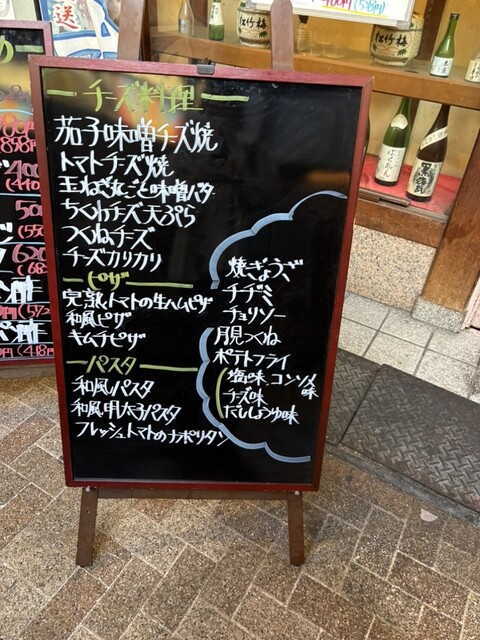 チーズ料理
茄子味噌チーズ焼
トマトチーズ焼
玉ねぎ丸ごと味噌バタ
ちくわチーズ天ぷら
つくねチーズ
チーズカリカリ
ピザ
完熟トマトの生ハムピザ
和風ピザ
キムチピザ
パスタ
和風パスタ
和風明太子パスタ
フレッシュトマトのナポリタン
焼ぎょうざ
チヂミ
チョリソー
月見つくね
ポテトフライ
塩味 コンソメ味
チーズ味
だししょうゆ味
送
松竹梅
松竹梅